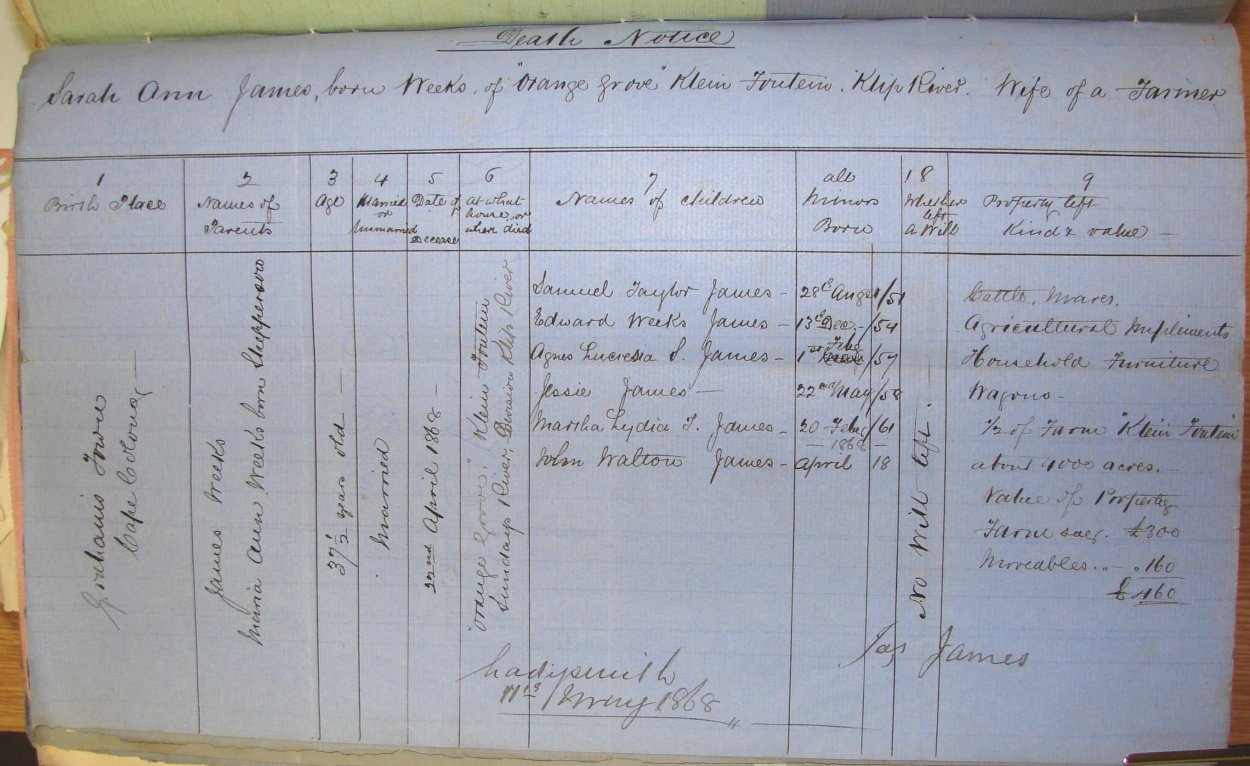 Death Notice
Sarah Ann James, born Weeks, of "Orange Grove" Klein Fontein, Klip River. Wife of a Farmer
1
Birth Place
Grahams Town
Cape Colony —
2
Names of
Parents
James Weeks
Maria Ann Weeks born Shepperson
3
Age
37 1/2 years old —
4
Married
or
Unmarried
Married
5
Date of
Decease
22nd April 1868 —
6
At what
house, or
where died
"Orange Grove," Klein Fontein
Sundays River, Division Klip River
7
Names of Children
all
Minors
Born
Samuel Taylor James — 28th Augst /51
Edward Weeks James — 13th Dec. — /54
Agnes Lucresia S. James — 1st Feby /57
Jessie James — 22nd May /58
Martha Lydia T. James — 20 Feby /61
— 1868 —
John Walton James — April 18
18
Whether
left
a Will
No Will left.
9
Property left
Kind & value —
Cattle, Mares,
Agricultural Implements
Household Furniture
Wagons —
1/2 of Farm "Klein Fontein"
about 4000 acres. —
Value of Property
Farm say. £300
Moveables. „ — „ 160
£460
Jas James
Ladysmith
May 1868